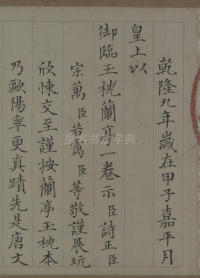 乾隆九年歲在甲子嘉平月
皇上以
御臨玉枕蘭亭一卷示臣詩正臣
宗萬臣若靄臣等敬謹展玩
欣悚交至謹按蘭亭玉枕本
乃歐陽率更真蹟先是唐文